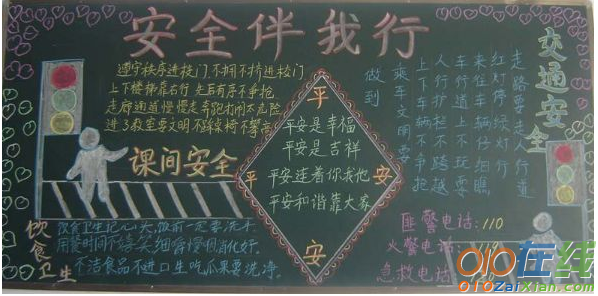 安全伴我行
遵守秩序进校门 不拥不挤进校门
上下楼梯靠右行 先后有序不争抢
走廊过道慢慢走 奔跑打闹不危险
进了教室要文明 不踩桌椅不攀高
课间安全
饮食卫生
饮食卫生记心头 饭前一定要洗手
用餐时间不嬉笑 细嚼慢咽消化好
不洁食品不进口 生吃瓜果要洗净
平
平
安
安
平安是幸福
平安是吉祥
平安连着你我他
平安和谐靠大家
交通安全
走路要走人行道
红灯停绿灯行
来往车辆仔细瞧
车行道上不玩耍
人行护栏不跨越
上下车辆不争抢
乘车文明要
做到
匪警电话:110
火警电话:119
急救电话:
OIO在线
OIOZaiXian.com